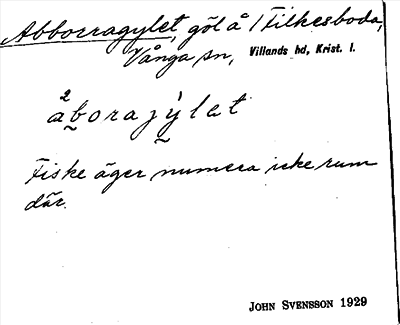 Abborragylet, göl å 1 Filkesboda,
Vånga sn, Villands hd, Krist. l.
2
åborajỳlet
Fiske äger numera icke rum
där.
JOHN SVENSSON 1929